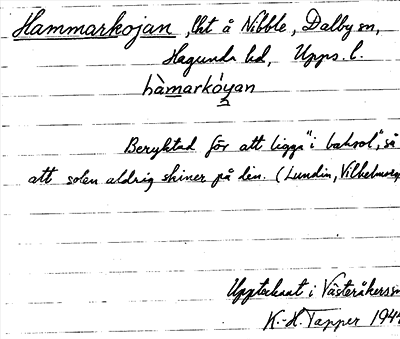 Hammarkojan, lht å Nibble, Dalby sn,
Hagunda hd, Upps. l.
hàmarkóyan
Beryktad för att ligga "i baksol", så
att solen aldrig skiner på den. (Lundin, Vilhelmsro
Upptecknat i Västeråkers sn
K.-H. Tapper